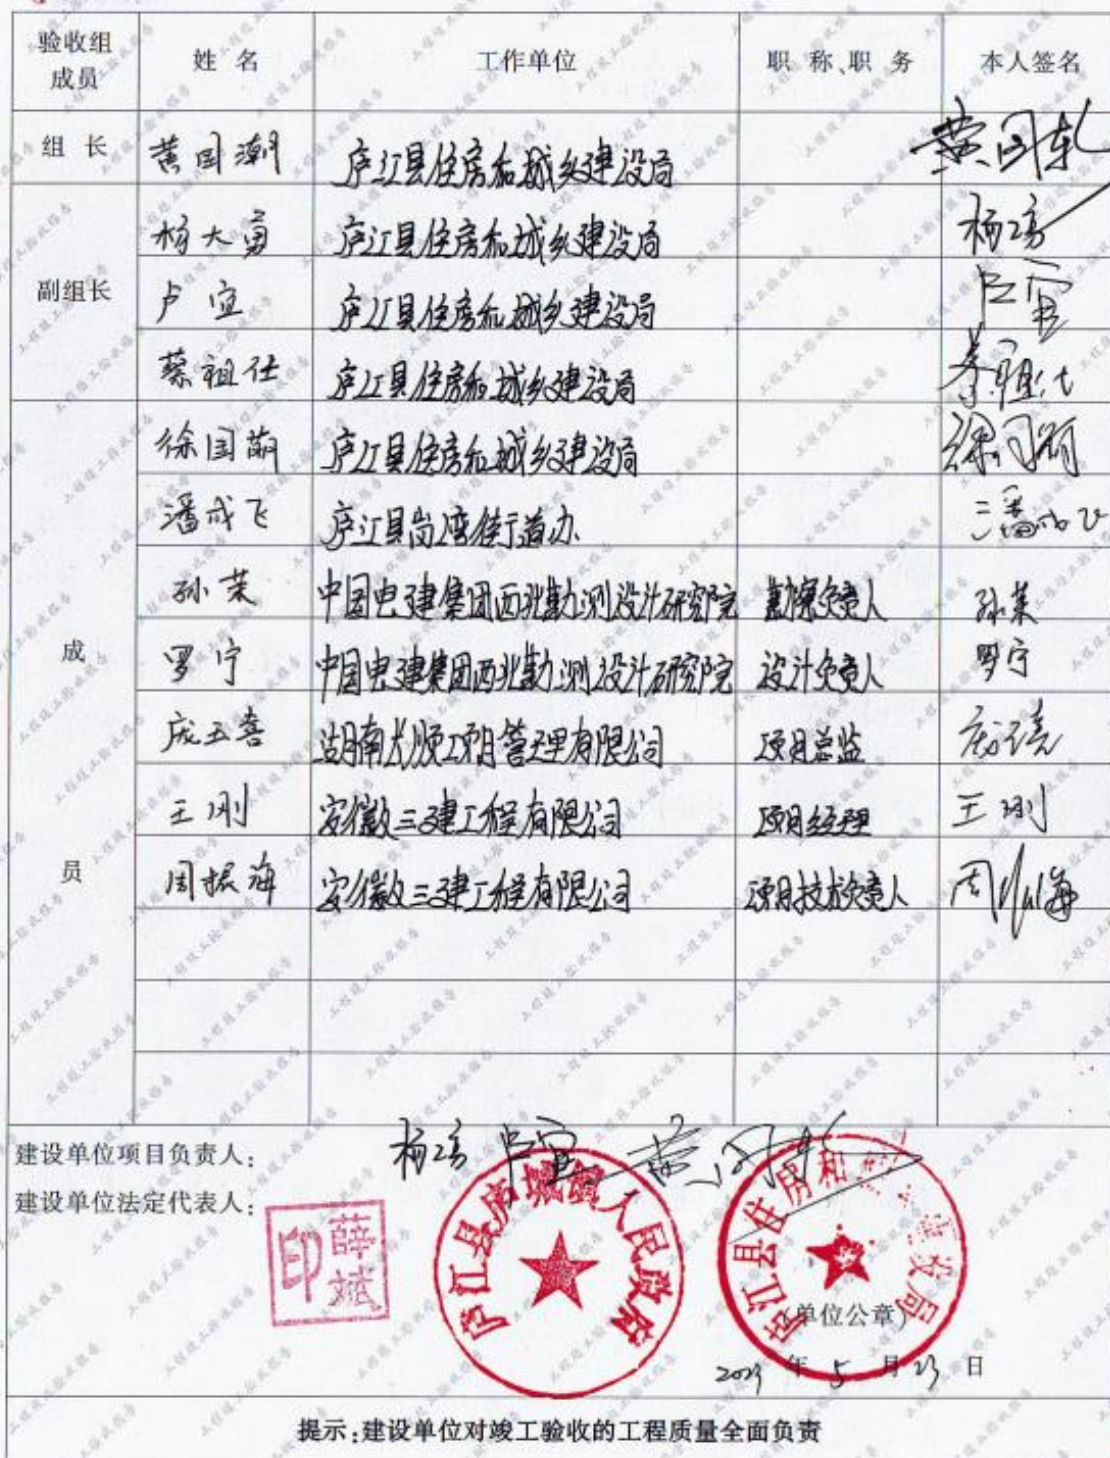 验收组成员 姓名 工作单位 职称、职务 本人签名
组长 黄国潮 庐江县住房和城乡建设局
副组长
杨大勇 庐江县住房和城乡建设局
卢宜 庐江县住房和城乡建设局 卢宜
蔡祖仕 庐江县住房和城乡建设局 蔡祖仕
成员
徐国萌 庐江县住房和城乡建设局
潘成飞 庐江县岗湾街道办 潘成飞
孙茉 中国电建集团西北勘测设计研究院 勘察负责人 孙茉
罗宁 中国电建集团西北勘测设计研究院 设计负责人 罗宁
庞五喜 湖南大顺项目管理有限公司 项目总监
王刚 安徽三建工程有限公司 项目经理 王刚
周振海 安徽三建工程有限公司 项目技术负责人 周振海
建设单位项目负责人: 卢宜
建设单位法定代表人:
薛斌印
庐江县庐城镇人民政府
庐江县住房和城乡建设局
(单位公章)
2023年5月23日
提示:建设单位对竣工验收的工程质量全面负责